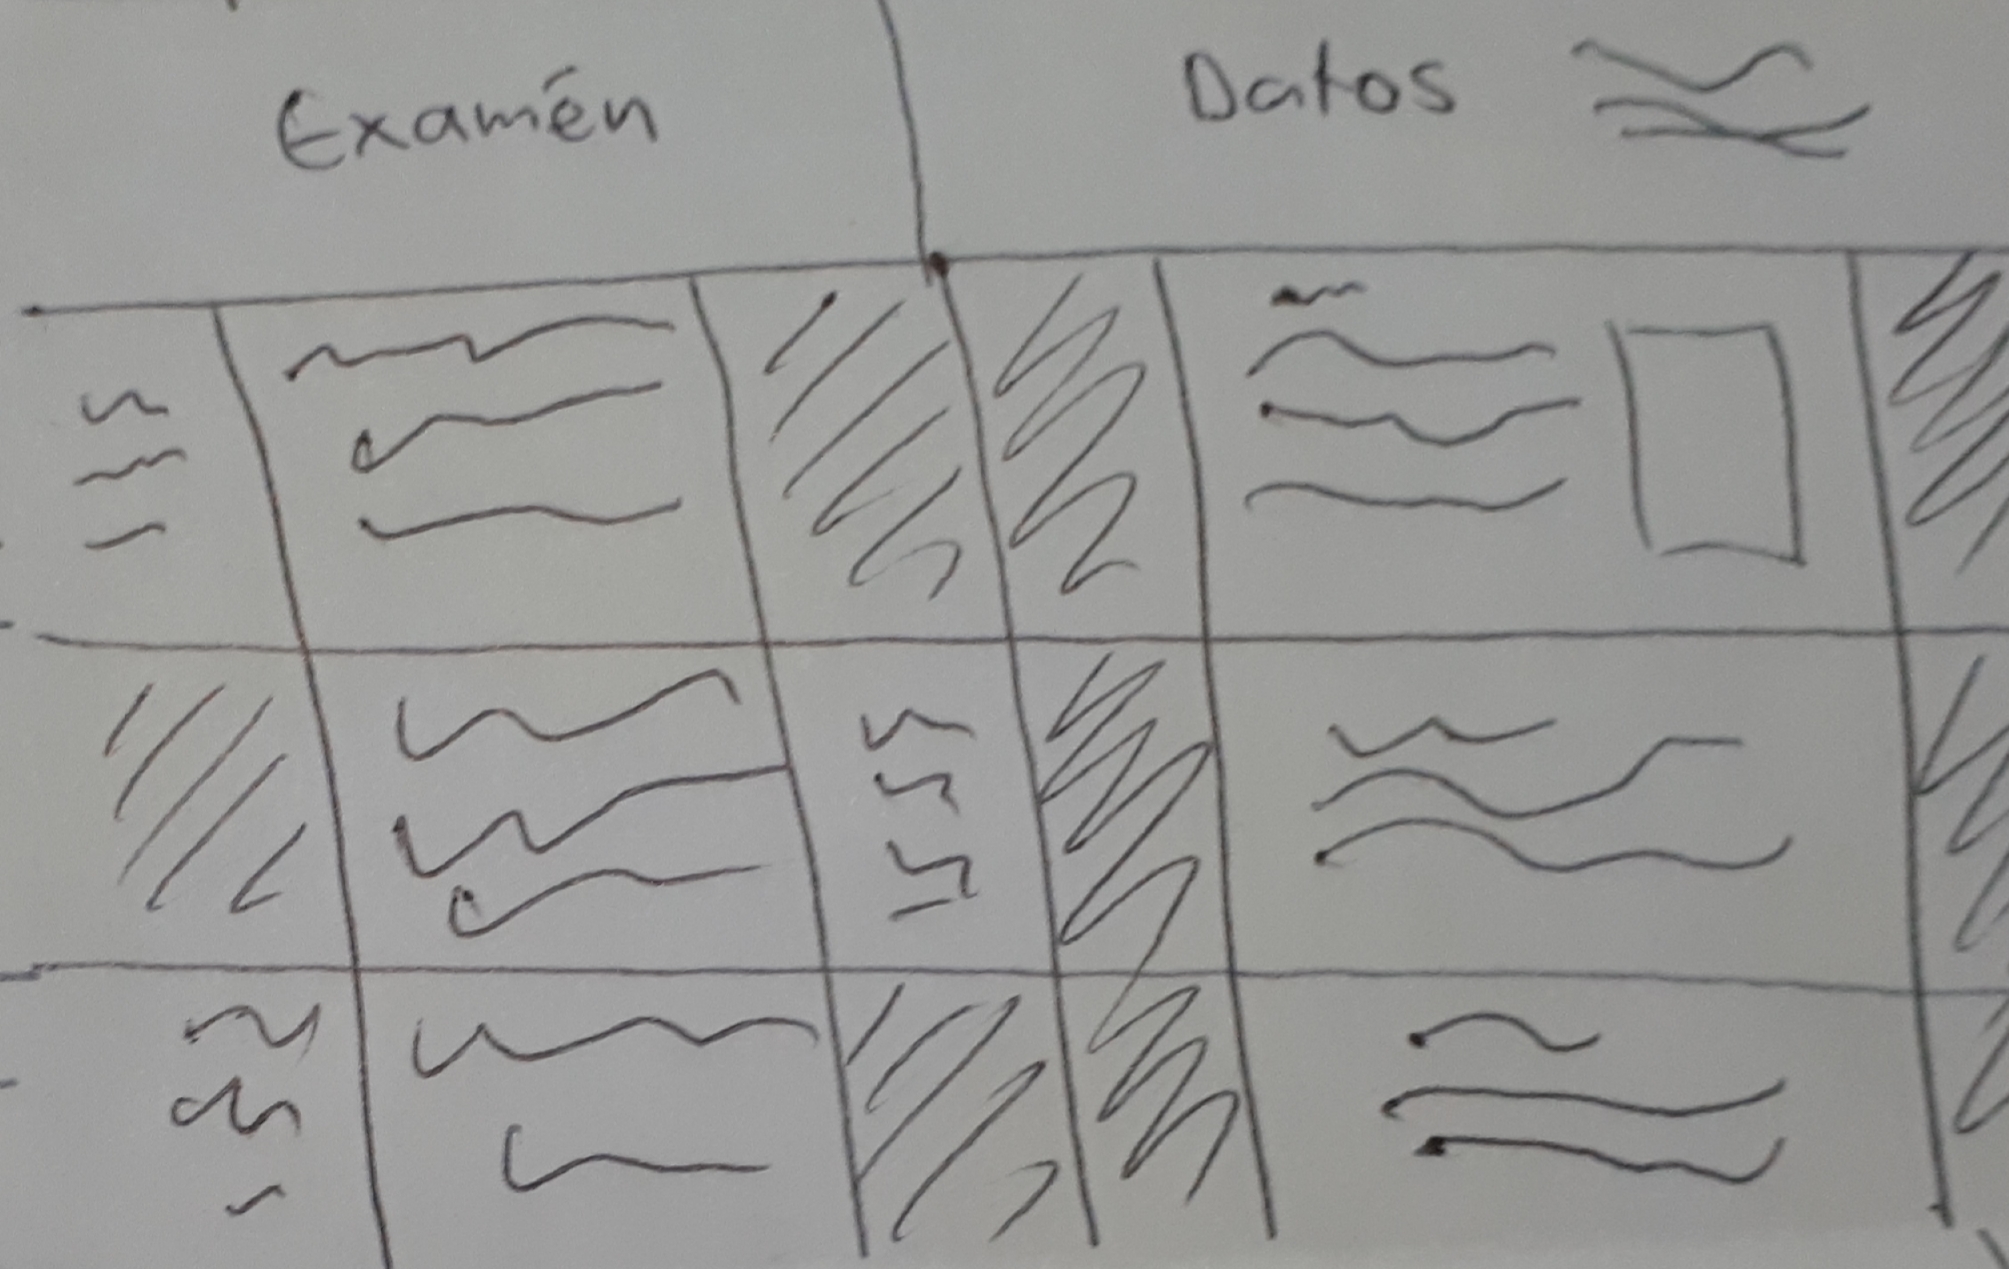 Examén
Datos